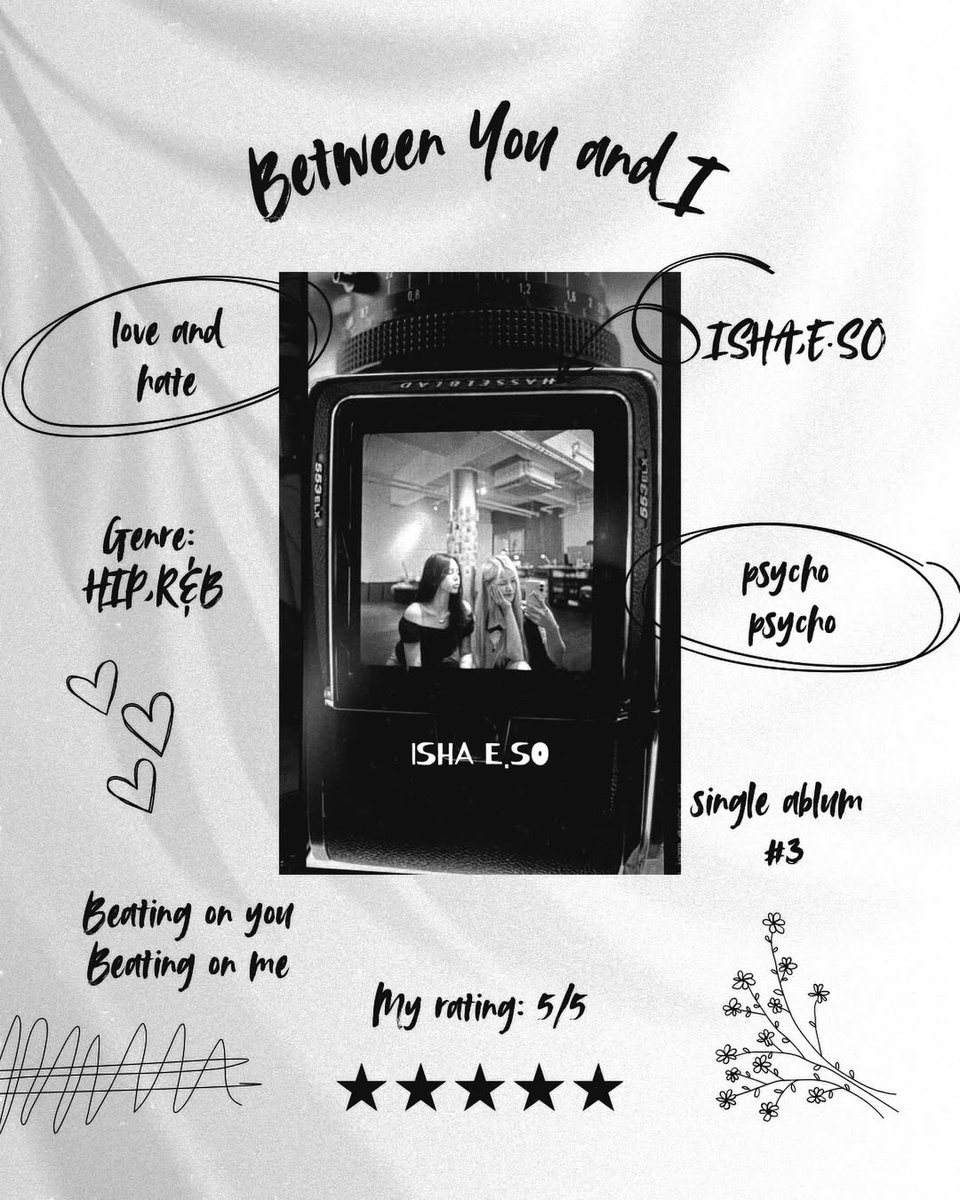 Between You and I
love and
hate
ISHA,E.SO
HASSELBLAD
553ELX
553ELX
Genre:
HIP,R&B
psycho
psycho
ISHA E.SO
single ablum
#3
Beating on you
Beating on me
My rating: 5/5